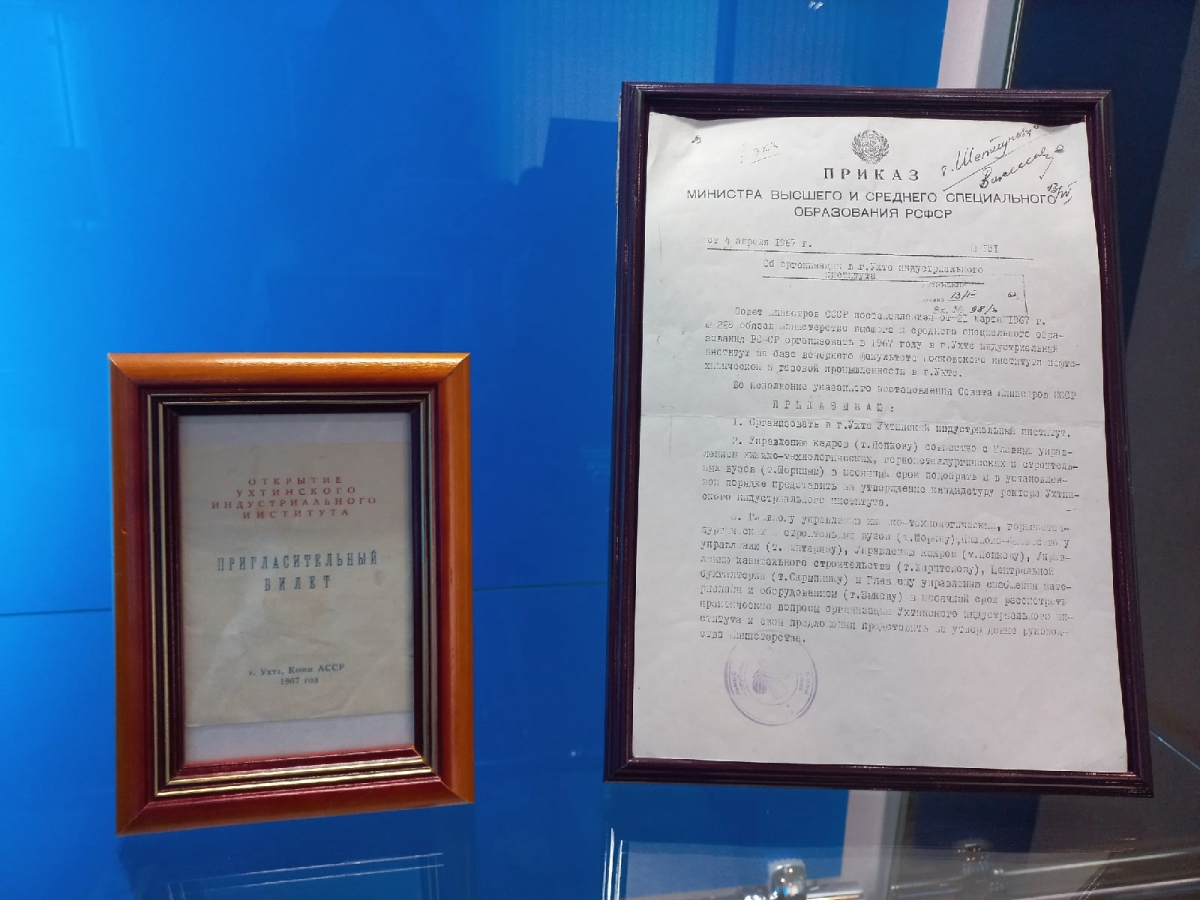 ОТКРЫТИЕ
УХТИНСКОГО
ИНДУСТРИАЛЬНОГО
ИНСТИТУТА
ПРИГЛАСИТЕЛЬНЫЙ
БИЛЕТ
г. Ухта, Коми АССР
1967 год
ПРИКАЗ
МИНИСТРА ВЫСШЕГО И СРЕДНЕГО СПЕЦИАЛЬНОГО
ОБРАЗОВАНИЯ РСФСР
от 4 апреля 1967 г.
№ 181
Об организации в г.Ухте индустриального
института
13/IV
Вх. № 98/3
Совет Министров СССР постановлением от 21 марта 1967 г.
№ 228 обязал Министерство высшего и среднего специального обра-
зования РСФСР организовать в 1967 году в г.Ухте индустриальный
институт на базе вечернего факультета Московского института нефте-
химической и газовой промышленности в г.Ухте.
Во исполнение указанного постановления Совета Министров СССР
ПРИКАЗЫВАЮ:
1. Организовать в г.Ухте Ухтинский индустриальный институт.
2. Управлению кадров (т.Попкову) совместно с Главным управ-
лением химико-технологических, горнометаллургических и строитель-
ных вузов (т.Шориным) в месячный срок подобрать и в установлен-
ном порядке представить на утверждение кандидатуру ректора Ухтин-
ского индустриального института.
3. Главному управлению химико-технологических, горнометал-
лургических и строительных вузов (т.Шорину), Планово-финансовому
управлению Управлению кадров (т.Попкову), Управ-
лению капитального строительства (т.Харитонову), Центральной
бухгалтерии (т.Скрипкину) и Главному управлению снабжения мате-
риалами и оборудованием (т.Зыкову) в месячный срок рассмотреть
практические вопросы организации Ухтинского индустриального ин-
ститута и свои предложения представить на утверждение руковод-
ства министерства.